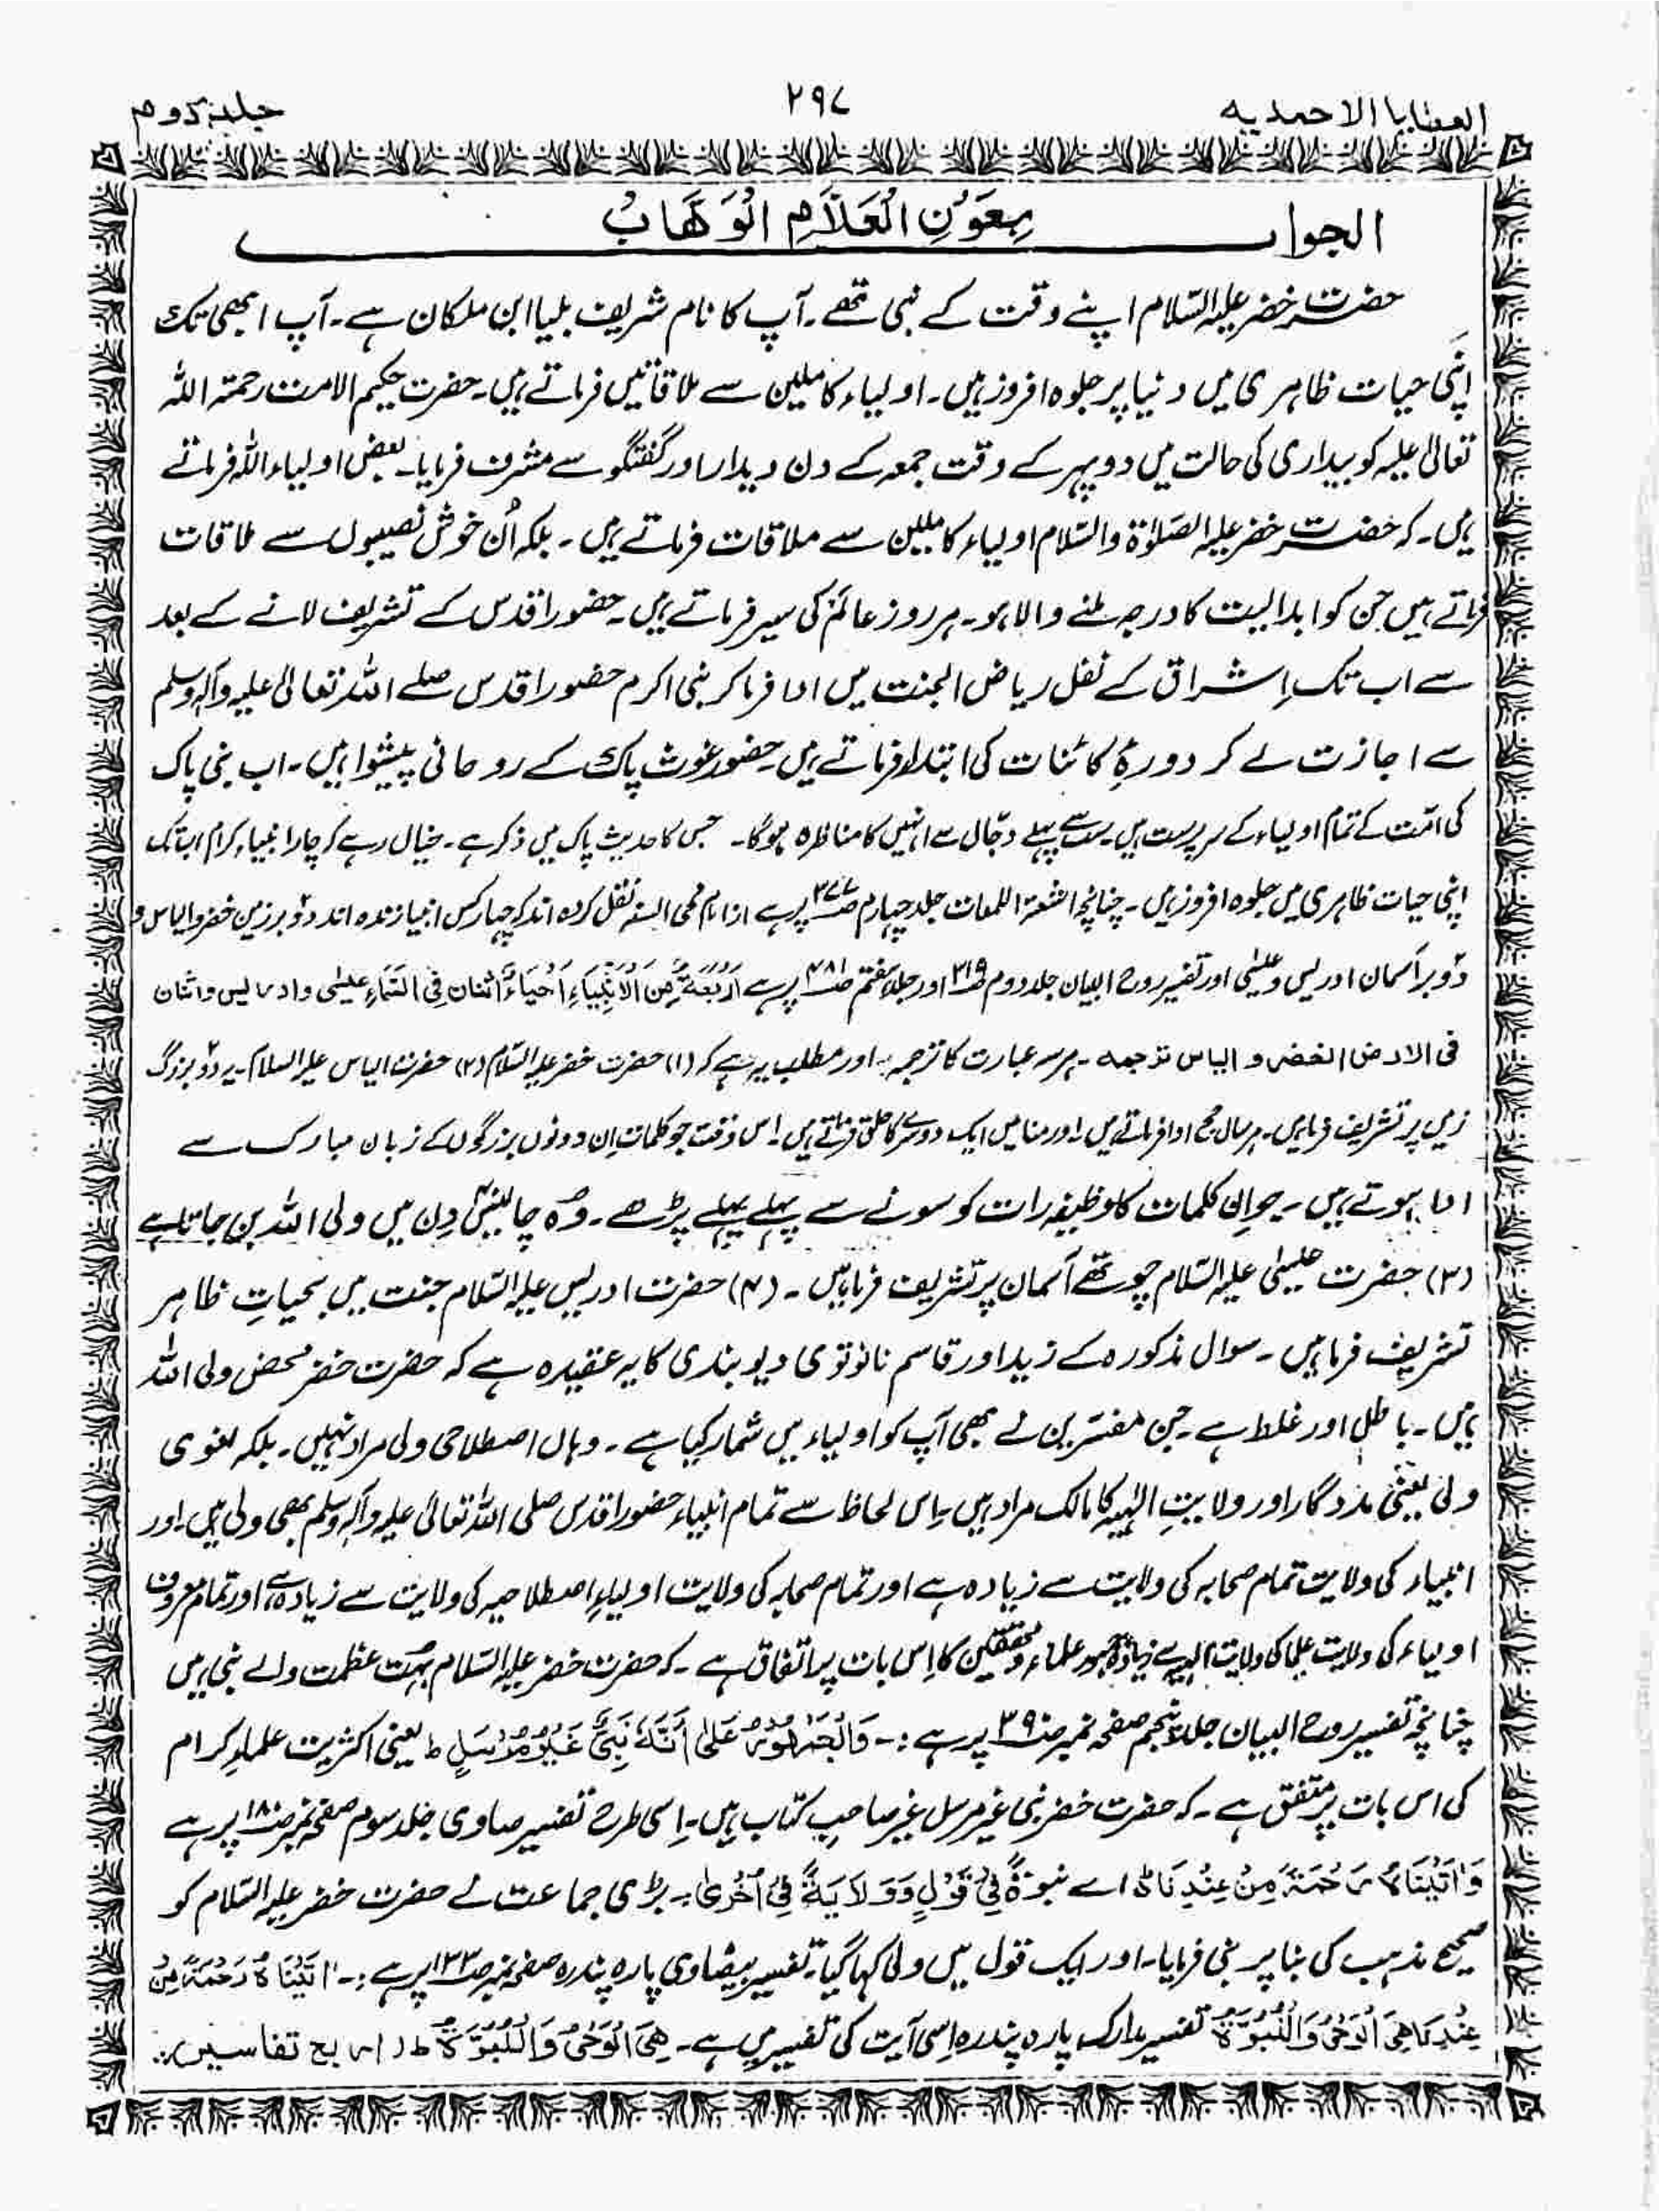 العطایا الاحمدیہ
۲۹۷
جلد دوم
الجواب بِعَوْنِ الْعَلَّامِ الْوَهَّابُ
حضرت خضر علیہ السّلام اپنے وقت کے نبی تھے۔ آپ کا نام شریف بلیا ابن ملکان ہے۔ آپ ابھی تک
اپنی حیات ظاہری میں دنیا پر جلوہ افروز ہیں۔ اولیاء کاملین سے ملاقاتیں فرماتے ہیں۔ حضرت حکیم الامت رحمتہ اللہ
تعالیٰ علیہ کو بیداری کی حالت میں دوپہر کے وقت جمعہ کے دن دیدار اور گفتگو سے مشرف فرمایا۔ بعض اولیاء اللہ فرماتے
ہیں۔ کہ حضرت خضر علیہ الصّلوٰۃ والسّلام اولیاء کاملین سے ملاقات فرماتے ہیں۔ بلکہ اُن خوش نصیبوں سے ملاقات
فرماتے ہیں جن کو ابدالیت کا درجہ ملنے والا ہو۔ ہر روز عالَم کی سیر فرماتے ہیں۔ حضور اقدس کے تشریف لانے کے بعد
سے اب تک اِشراق کے نفل ریاض الجنت میں ادا فرما کر نبی اکرم حضور اقدس صلے اللہ تعالیٰ علیہ وآلہ وسلم
سے اجازت لے کر دورۂ کائنات کی ابتداء فرماتے ہیں۔ حضور غوث پاک کے روحانی پیشوا ہیں۔ اب نبی پاک
کی امّت کے تمام اولیاء کے سرپرست ہیں۔ سب سے پہلے دجّال سے انہیں کا مناظرہ ہوگا۔ جس کا حدیث پاک میں ذکر ہے۔ خیال رہے کہ چار انبیاء کرام اب تک
اپنی حیات ظاہری میں جلوہ افروز ہیں۔ چنانچہ اشعۃ اللمعات جلد چہارم صـ پر ہے از امام محی السنہ نقل کردہ اند کہ چہار کس انبیا زندہ اند دوؔ بر زمین خضر و الیاس و
دوؔ بر آسمان ادریس و عیسٰی اور تفسیر روح البیان جلد دوم صـ۳۱۹ اور جلد ہفتم صـ۲۸۱ پر ہے اَرْبَعَةٌ مِّنَ الْاَنْبِيَاءِ اَحْيَاءٌ اثنان فِى السَّمَاءِ عیسٰی وادریس واثنان
فی الارض الخضر و الیاس ترجمہ۔ ہر سہ عبارت کا ترجمہ اور مطلب یہ ہے کہ (۱) حضرت خضر علیہ السّلام (۲) حضرت الیاس علیہ السلام۔ یہ دوؔ بزرگ
زمین پر تشریف فرما ہیں۔ ہر سال حج ادا فرماتے ہیں۔ اور منا میں ایک دوسرے کا حلق فرماتے ہیں۔ اس وقت جو کلمات اِن دونوں بزرگوں کے زبان مبارک سے
ادا ہوتے ہیں۔ جو اِن کلمات کا وظیفہ رات کو سونے سے پہلے پہلے پڑھے۔ وہ چالیسؔ دِن میں ولی اللہ بن جاتا ہے
(۳) حضرت عیسٰی علیہ السّلام چوتھے آسمان پر تشریف فرما ہیں۔ (۴) حضرت ادریس علیہ السّلام جنت میں بحیاتِ ظاہر
تشریف فرما ہیں۔ سوال مذکورہ کے زید اور قاسم نانوتوی دیوبندی کا یہ عقیدہ ہے کہ حضرت خضر محض ولی اللہ
ہیں۔ باطل اور غلط ہے۔ جن مفسّرین نے بھی آپ کو اولیاء میں شمار کیا ہے۔ وہاں اصطلاحی ولی مراد نہیں۔ بلکہ لغوی
ولی یعنی مددگار اور ولایتِ الٰہیہ کا مالک مراد ہیں۔ اِس لحاظ سے تمام انبیاء حضور اقدس صلی اللہ تعالیٰ علیہ وآلہ وسلم بھی ولی ہیں۔ اور
انبیاء کی ولایت تمام صحابہ کی ولایت سے زیادہ ہے اور تمام صحابہ کی ولایت اولیاءِ اصطلاحیہ کی ولایت سے زیادہ ہے، اور تمام معروف
اولیاء کی ولایت علما کی ولایت سے زیادہ جمہور علماء و محققین کا اِس بات پر اتفاق ہے۔ کہ حضرت خضر علیہ السّلام بہت عظمت والے نبی ہیں
چنانچہ تفسیر روح البیان جلد پنجم صفحہ نمبر صـ۳۹ پر ہے:۔ وَالْجَمْهُوْرُ عَلىٰ اَنَّهٗ نَبِىٌّ غَيْرُ مُرْسَلٍ ط یعنی اکثریت علماءِ کرام
کی اس بات پر متفق ہے۔ کہ حضرت خضر نبی غیر مرسل غیر صاحبِ کتاب ہیں۔ اِسی طرح تفسیر صاوی جلد سوم صفحہ نمبر صـ۱۸ پر ہے
وَاٰتَيْنَاهُ رَحْمَةً مِنْ عِنْدِنَا ط اے نبوۃً فِىْ قَوْلٍ وَوَلَايَةً فِىْ اٰخُرىٰ۔ بڑی جماعت نے حضرت خضر علیہ السّلام کو
صحیح مذہب کی بنا پر نبی فرمایا۔ اور ایک قول میں ولی کہا گیا۔ تفسیر بیضاوی پارہ پندرہ صفحہ نمبر صـ۱۳۳ پر ہے:۔ اٰتَيْنَاهُ رَحْمَةً مِنْ
عِنْدِنَا هِىَ الْوَحْىُ وَالنُّبُوَّةُ تفسیر مدارک پارہ پندرہ اِسی آیت کی تفسیر میں ہے۔ هِىَ الْوَحْىُ وَالنُّبُوَّةُ ط (اربع تفاسیر)